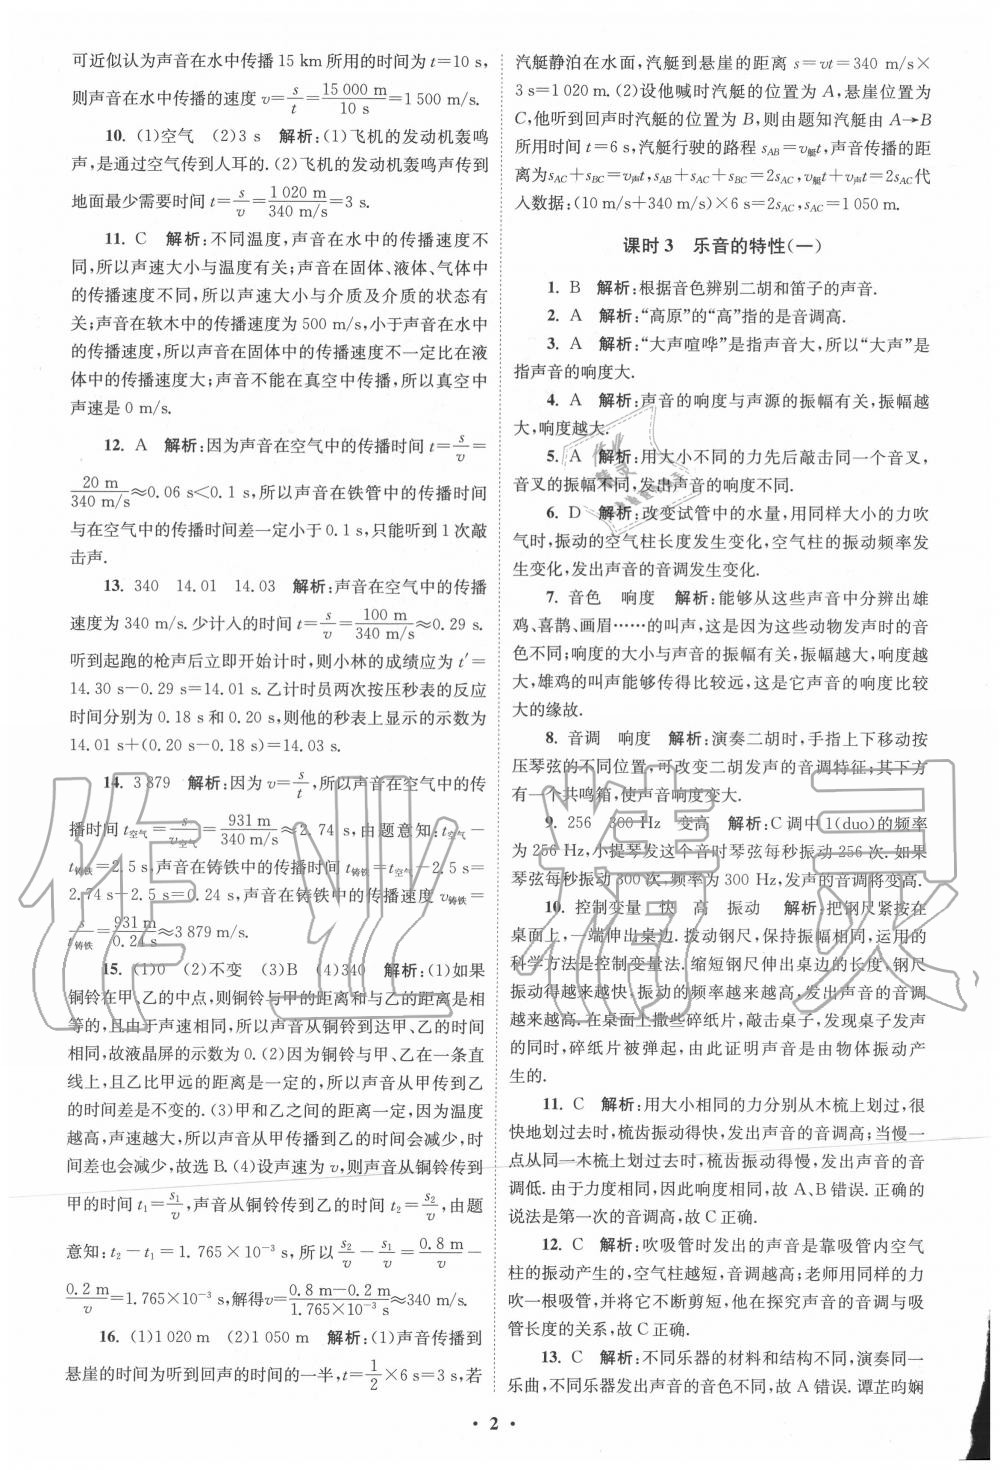 可近似认为声音在水中传播15 km所用的时间为t=10 s,
则声音在水中传播的速度v=s/t=15 000 m/10 s=1 500 m/s.
10. (1)空气 (2)3 s 解析:(1)飞机的发动机轰鸣
声,是通过空气传到人耳的.(2)飞机的发动机轰鸣声传到
地面最少需要时间t=s/v=1 020 m/340 m/s=3 s.
11. C 解析:不同温度,声音在水中的传播速度不
同,所以声速大小与温度有关;声音在固体、液体、气体中
的传播速度不同,所以声速大小与介质及介质的状态有
关;声音在软木中的传播速度为500 m/s,小于声音在水中
的传播速度,所以声音在固体中的传播速度不一定比在液
体中的传播速度大;声音不能在真空中传播,所以真空中
声速是0 m/s.
12. A 解析:因为声音在空气中的传播时间t=s/v=
20 m/340 m/s≈0.06 s<0.1 s,所以声音在铁管中的传播时间
与在空气中的传播时间差一定小于0.1 s,只能听到1次敲
击声.
13. 340 14.01 14.03 解析:声音在空气中的传播
速度为340 m/s.少计入的时间t=s/v=100 m/340 m/s≈0.29 s.
听到起跑的枪声后立即开始计时,则小林的成绩应为t′=
14.30 s-0.29 s=14.01 s.乙计时员两次按压秒表的反应
时间分别为0.18 s和0.20 s,则他的秒表上显示的示数为
14.01 s+(0.20 s-0.18 s)=14.03 s.
14. 3 879 解析:因为v=s/t,所以声音在空气中的传
播时间t空气=s/v空气=931 m/340 m/s≈2.74 s,由题意知:t空气-
t铸铁=2.5 s,声音在铸铁中的传播时间t铸铁=t空气-2.5 s=
2.74 s-2.5 s=0.24 s,声音在铸铁中的传播速度v铸铁=
s/t铸铁=931 m/0.24 s≈3 879 m/s.
15. (1)0 (2)不变 (3)B (4)340 解析:(1)如果
铜铃在甲、乙的中点,则铜铃与甲的距离和与乙的距离是相
等的,且由于声速相同,所以声音从铜铃到达甲、乙的时间
相同,故液晶屏的示数为0.(2)因为铜铃与甲、乙在一条直
线上,且乙比甲远的距离是一定的,所以声音从甲传到乙
的时间差是不变的.(3)甲和乙之间的距离一定,因为温度
越高,声速越大,所以声音从甲传播到乙的时间会减少,时
间差也会减少,故选B.(4)设声速为v,则声音从铜铃传到
甲的时间t₁=s₁/v,声音从铜铃传到乙的时间t₂=s₂/v,由题
意知:t₂-t₁=1.765×10⁻³ s,所以s₂/v-s₁/v=0.8 m/v-
0.2 m/v=1.765×10⁻³ s,解得v=(0.8 m-0.2 m)/(1.765×10⁻³ s)≈340 m/s.
16. (1)1 020 m (2)1 050 m 解析:(1)声音传播到
悬崖的时间为听到回声的时间的一半,t=1/2×6 s=3 s,若
汽艇静泊在水面,汽艇到悬崖的距离s=vt=340 m/s×
3 s=1 020 m.(2)设他喊时汽艇的位置为A,悬崖位置为
C,他听到回声时汽艇的位置为B,则由题知汽艇由A→B
所用时间t=6 s,汽艇行驶的路程sAB=v艇t,声音传播的距
离为sAC+sBC=v声t,sAB+sAC+sBC=2sAC,v艇t+v声t=2sAC代
入数据:(10 m/s+340 m/s)×6 s=2sAC,sAC=1 050 m.
课时3 乐音的特性(一)
1. B 解析:根据音色辨别二胡和笛子的声音.
2. A 解析:“高原”的“高”指的是音调高.
3. A 解析:“大声喧哗”是指声音大,所以“大声”是
指声音的响度大.
4. A 解析:声音的响度与声源的振幅有关,振幅越
大,响度越大.
5. A 解析:用大小不同的力先后敲击同一个音叉,
音叉的振幅不同,发出声音的响度不同.
6. D 解析:改变试管中的水量,用同样大小的力吹
气时,振动的空气柱长度发生变化,空气柱的振动频率发
生变化,发出声音的音调发生变化.
7. 音色 响度 解析:能够从这些声音中分辨出雄
鸡、喜鹊、画眉……的叫声,这是因为这些动物发声时的音
色不同;响度的大小与声音的振幅有关,振幅越大,响度越
大,雄鸡的叫声能够传得比较远,这是它声音的响度比较
大的缘故.
8. 音调 响度 解析:演奏二胡时,手指上下移动按
压琴弦的不同位置,可改变二胡发声的音调特征;其下方
有一个共鸣箱,使声音响度变大.
9. 256 300 Hz 变高 解析:C调中1(duo)的频率
为256 Hz,小提琴发这个音时琴弦每秒振动256次.如果
琴弦每秒振动300次,频率为300 Hz,发声的音调将变高.
10. 控制变量 快 高 振动 解析:把钢尺紧按在
桌面上,一端伸出桌边.拨动钢尺,保持振幅相同,运用的
科学方法是控制变量法.缩短钢尺伸出桌边的长度,钢尺
振动得越来越快、振动的频率越来越高,发出声音的音调
越来越高.在桌面上撒些碎纸片,敲击桌子,发现桌子发声
的同时,碎纸片被弹起,由此证明声音是由物体振动产
生的.
11. C 解析:用大小相同的力分别从木梳上划过,很
快地划过去时,梳齿振动得快,发出声音的音调高;当慢一
点从同一木梳上划过时,梳齿振动得慢,发出声音的音
调低.由于力度相同,因此响度相同,故A、B错误.正确的
说法是第一次的音调高,故C正确.
12. C 解析:吹吸管时发出的声音是靠吸管内空气
柱的振动产生的,空气柱越短,音调越高;老师用同样的力
吹一根吸管,并将它不断剪短,他在探究声音的音调与吸
管长度的关系,故C正确.
13. C 解析:不同乐器的材料和结构不同,演奏同一
乐曲,不同乐器发出声音的音色不同,故A错误.谭芷昀娴
• 2 •
作业精灵